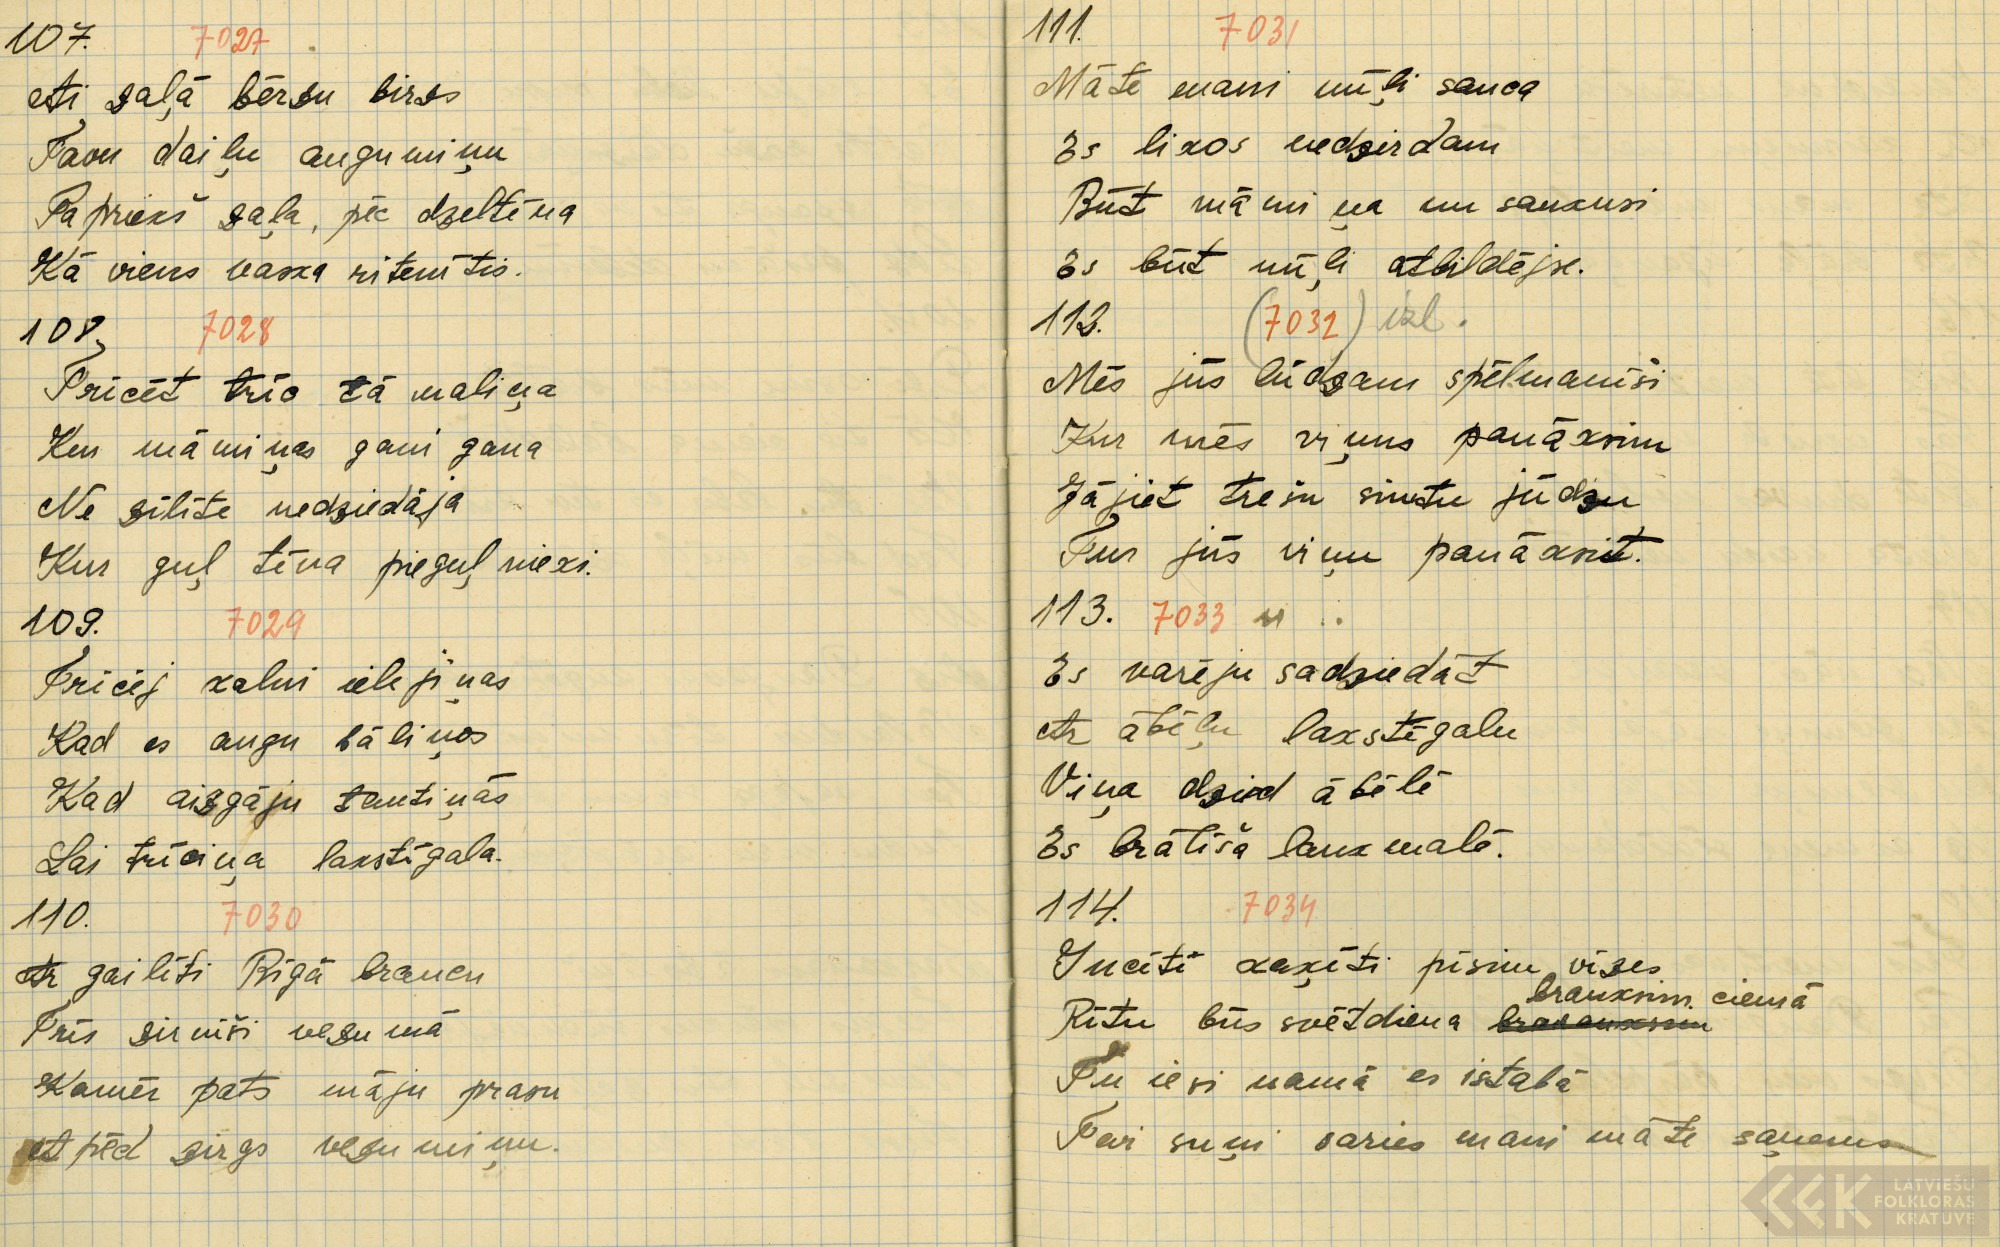 107. 7027
Ai zaļā bērzu birzs
Tavu daiļu augumiņu
Papriekš zaļa, pēc dzeltēna
Kā viens vaska ritenītis.
108. 7028
Trīcēt trīc tā maliņa
Kur māmiņas gani gana
Ne zīlīte nedziedāja
Kur guļ tēva pieguļnieki.
109. 7029
Trīcēj kalni ielejiņas
Kad es augu bāliņos
Kad aizgāju tautiņās
Lai trīcina lakstīgala.
110. 7030
Ar gailīti Rīgā braucu
Trīs sirnīši vezumā
Kamēr pats māju prasu
Atpēd zirgs vezumiņu.
111. 7031
Māte mani mīļi sauca
Es likos nedzirdam
Būt māmiņa nu saukusi
Es būt mīļi atbildējse.
112. (7032) izl.
Mēs jūs lūdzam spēlmanīši
Kur mēs viņus panāksim
Jājiet trešu simtu jūdzu
Tur jūs viņu panāksit.
113. 7033
Es varēju sadziedāt
Ar ābēļu lakstīgalu
Viņa dzied ābēlē
Es brālīša laukmalē.
114. 7034
Incīti kaķīti pīsim vīzes
brauksim ciemā
Rītu būs svētdiena
Tu iesi namā es istabā
Tevi suņi saries mani māte saņems
LATVIEŠU
FOLKLORAS
KRĀTUVE